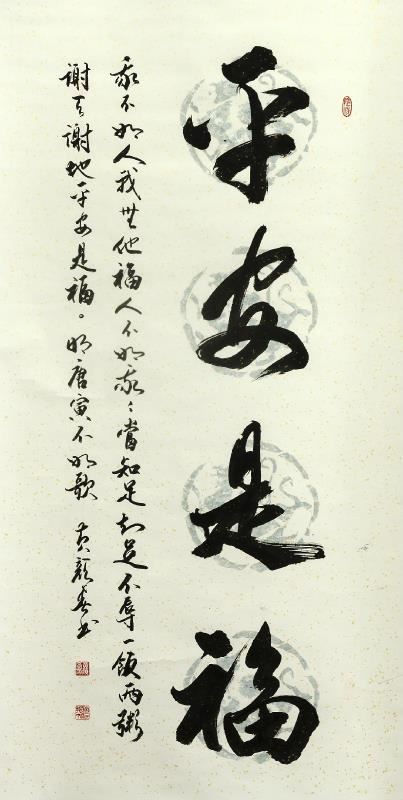 平安是福
我不如人我無他福人不如我〻當知足知足不辱一飯兩粥
謝天謝地平安是福。明唐寅不如歌 书